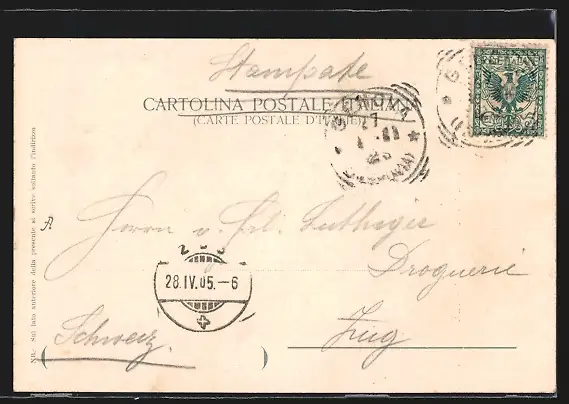 Stampate
CARTOLINA POSTALE ITALIANA
(CARTE POSTALE D'ITALIE)
Herrn v. Frl. Luthiger
Droguerie
Zug
Schweiz.
28.IV.05.–6
NB. Sul lato anteriore della presente si scrive soltanto l'indirizzo
A